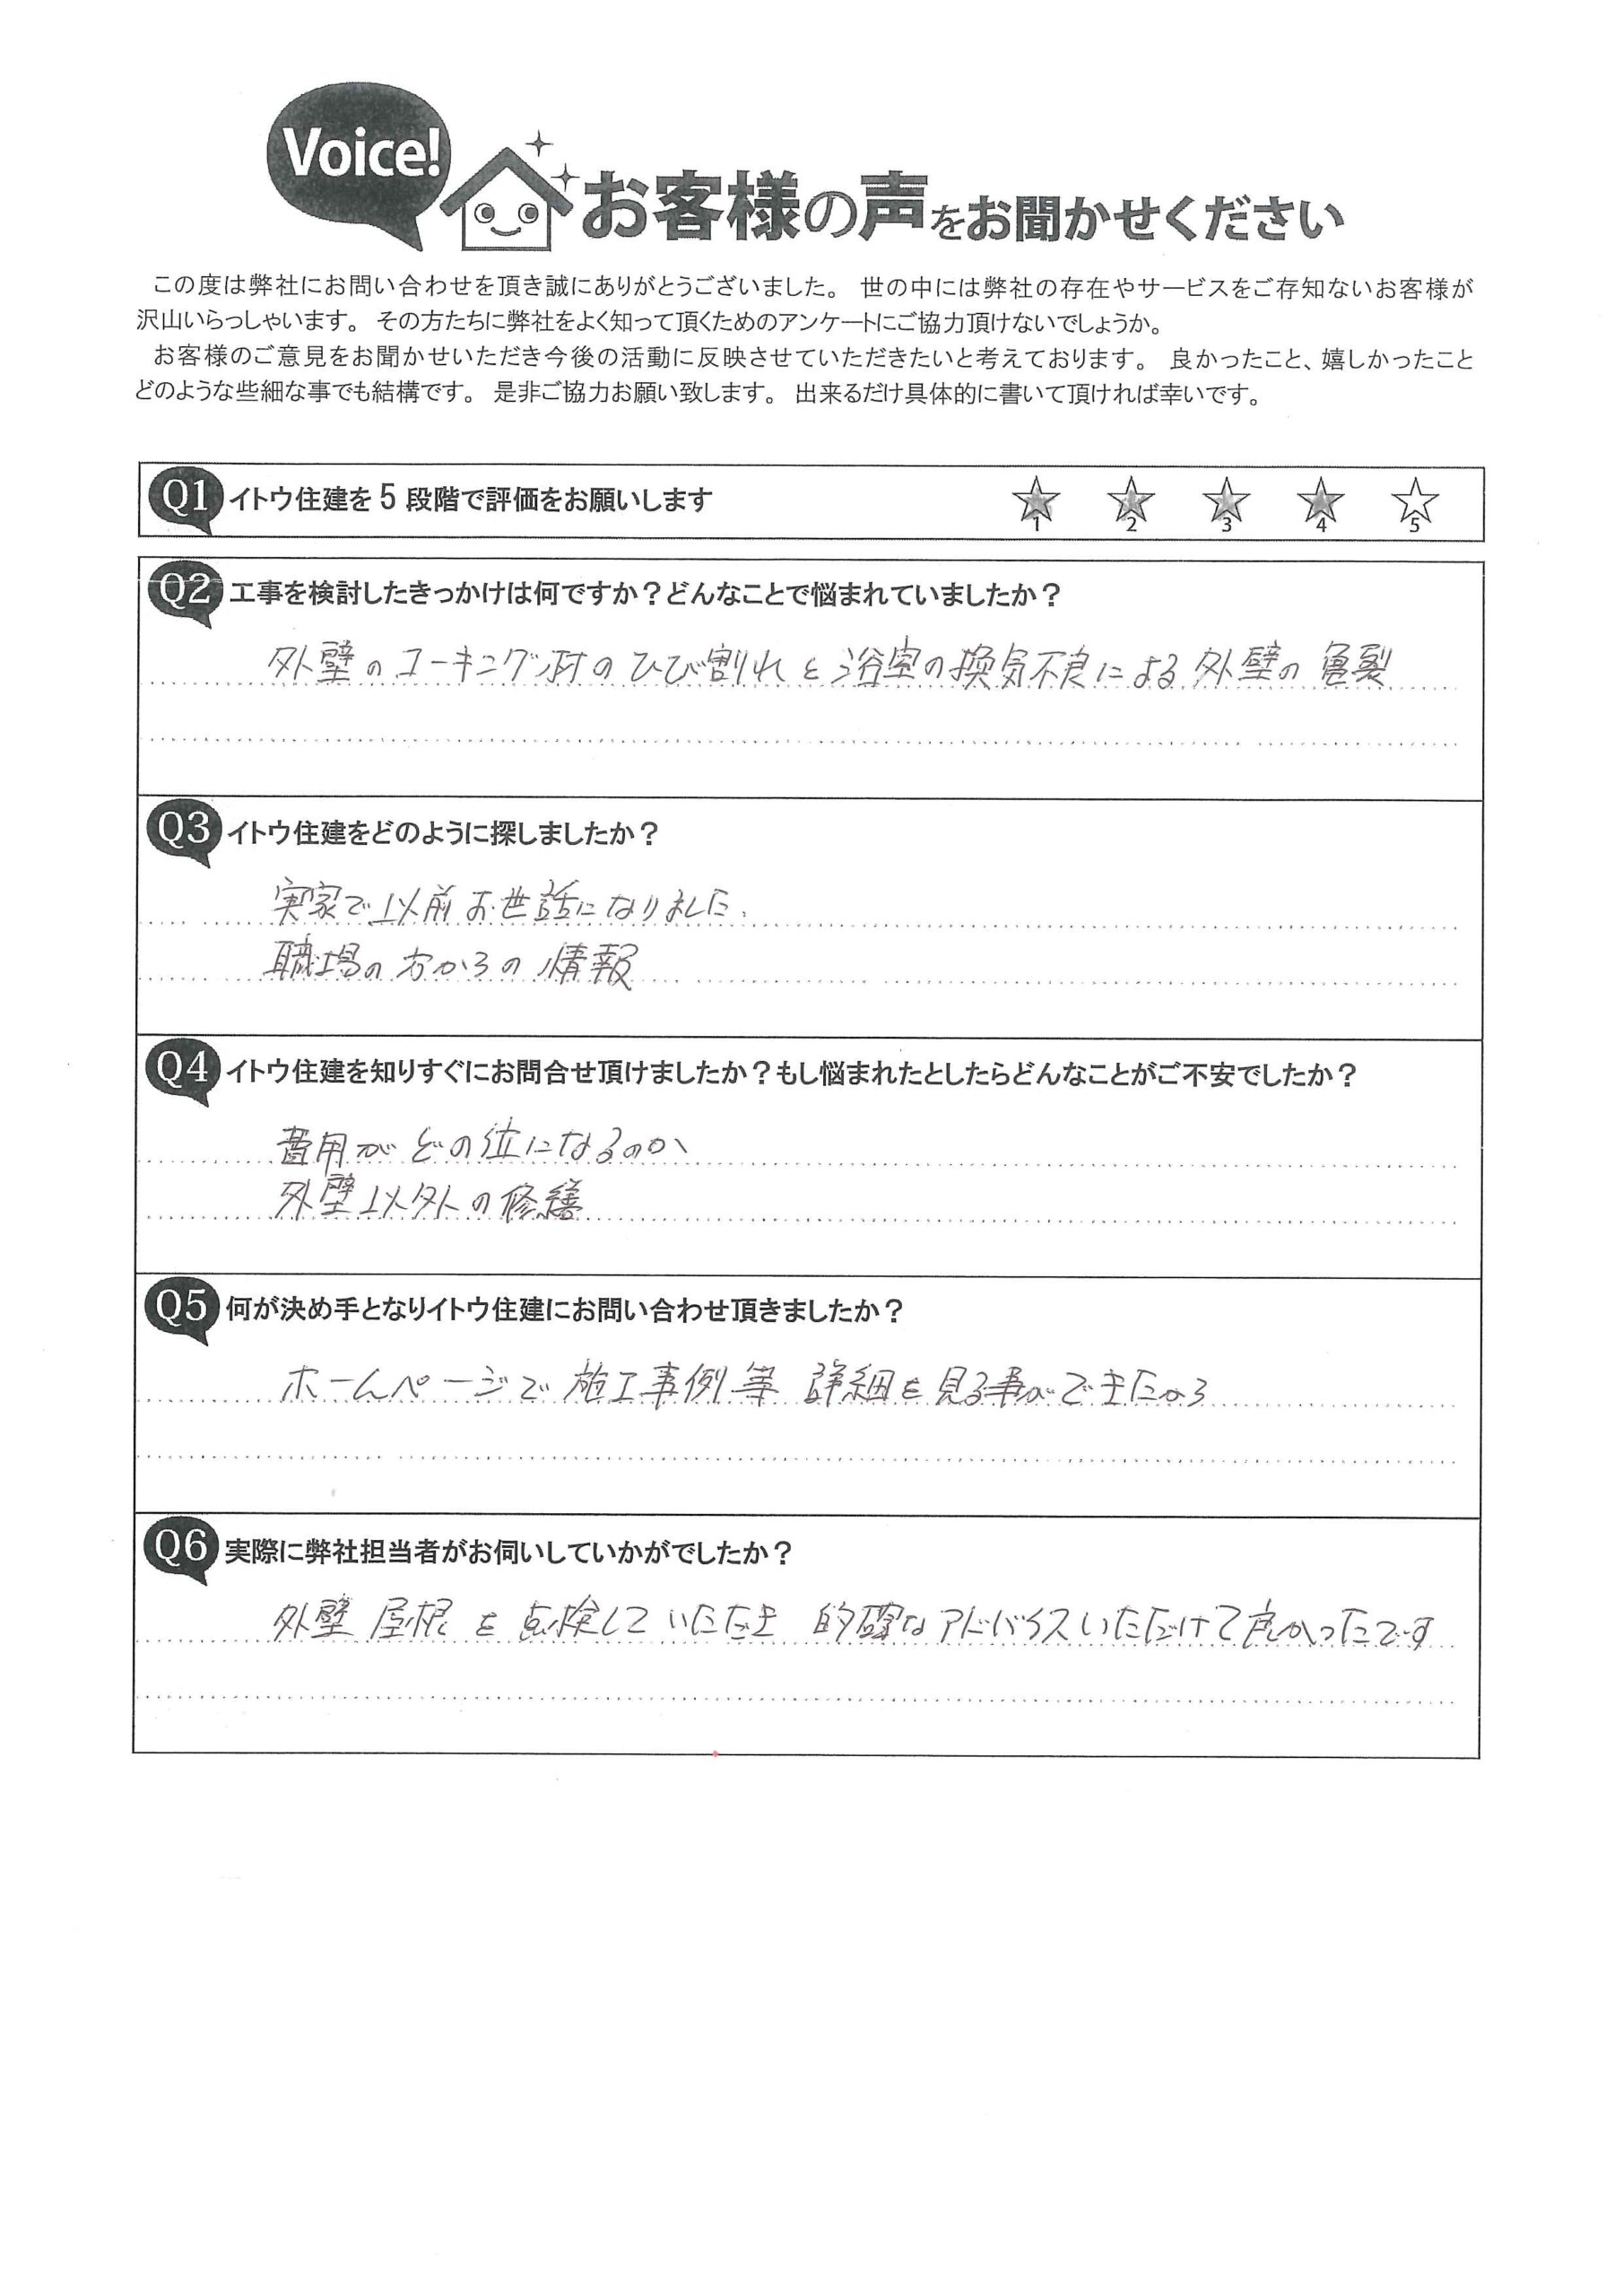 Voice!
お客様の声をお聞かせください
この度は弊社にお問い合わせを頂き誠にありがとうございました。 世の中には弊社の存在やサービスをご存知ないお客様が
沢山いらっしゃいます。 その方たちに弊社をよく知って頂くためのアンケートにご協力頂けないでしょうか。
お客様のご意見をお聞かせいただき今後の活動に反映させていただきたいと考えております。 良かったこと、嬉しかったこと
どのような些細な事でも結構です。 是非ご協力お願い致します。 出来るだけ具体的に書いて頂ければ幸いです。
Q1 イトウ住建を5段階で評価をお願いします 1 2 3 4 5
Q2 工事を検討したきっかけは何ですか？どんなことで悩まれていましたか？
外壁のコーキング材のひび割れと浴室の換気不良による外壁の亀裂
Q3 イトウ住建をどのように探しましたか？
実家で以前お世話になりました、
職場の方からの情報
Q4 イトウ住建を知りすぐにお問合せ頂けましたか？もし悩まれたとしたらどんなことがご不安でしたか？
費用がどの位になるのか
外壁以外の修繕
Q5 何が決め手となりイトウ住建にお問い合わせ頂きましたか？
ホームページで施工事例等 詳細を見る事ができたから
Q6 実際に弊社担当者がお伺いしていかがでしたか？
外壁 屋根を点検していただき 的確なアドバイスいただけて良かったです